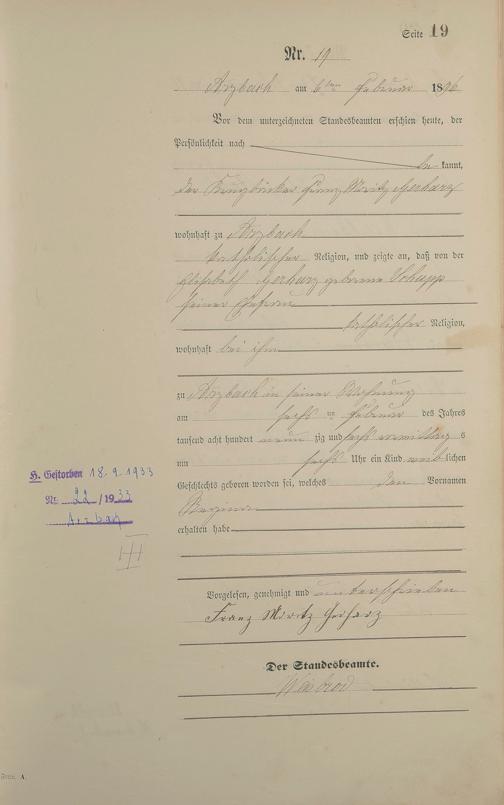 Seite 19
Nr. 19
Arzbach am 6ten Februar 1896
Vor dem unterzeichneten Standesbeamten erschien heute, der
Persönlichkeit nach
be kannt,
der Franz Moritz Gerharz
wohnhaft zu Arzbach
katholischer Religion, und zeigte an, daß von der
Elisabeth Gerharz geborene Schupp
seiner Ehefrau
katholischer Religion,
wohnhaft bei ihm
zu Arzbach in seiner Wohnung
am sechsten Februar des Jahres
tausend acht hundert neunzig und sechs vormittags
um sechs Uhr ein Kind weiblichen
H. Gestorben 18.9.1933
Geschlechts geboren worden sei, welches den Vornamen
Nr. 22/1933
Regina
Arzbach
erhalten habe
Vorgelesen, genehmigt und unterschrieben
Franz Moritz Gerharz
Der Standesbeamte.
Form. A.